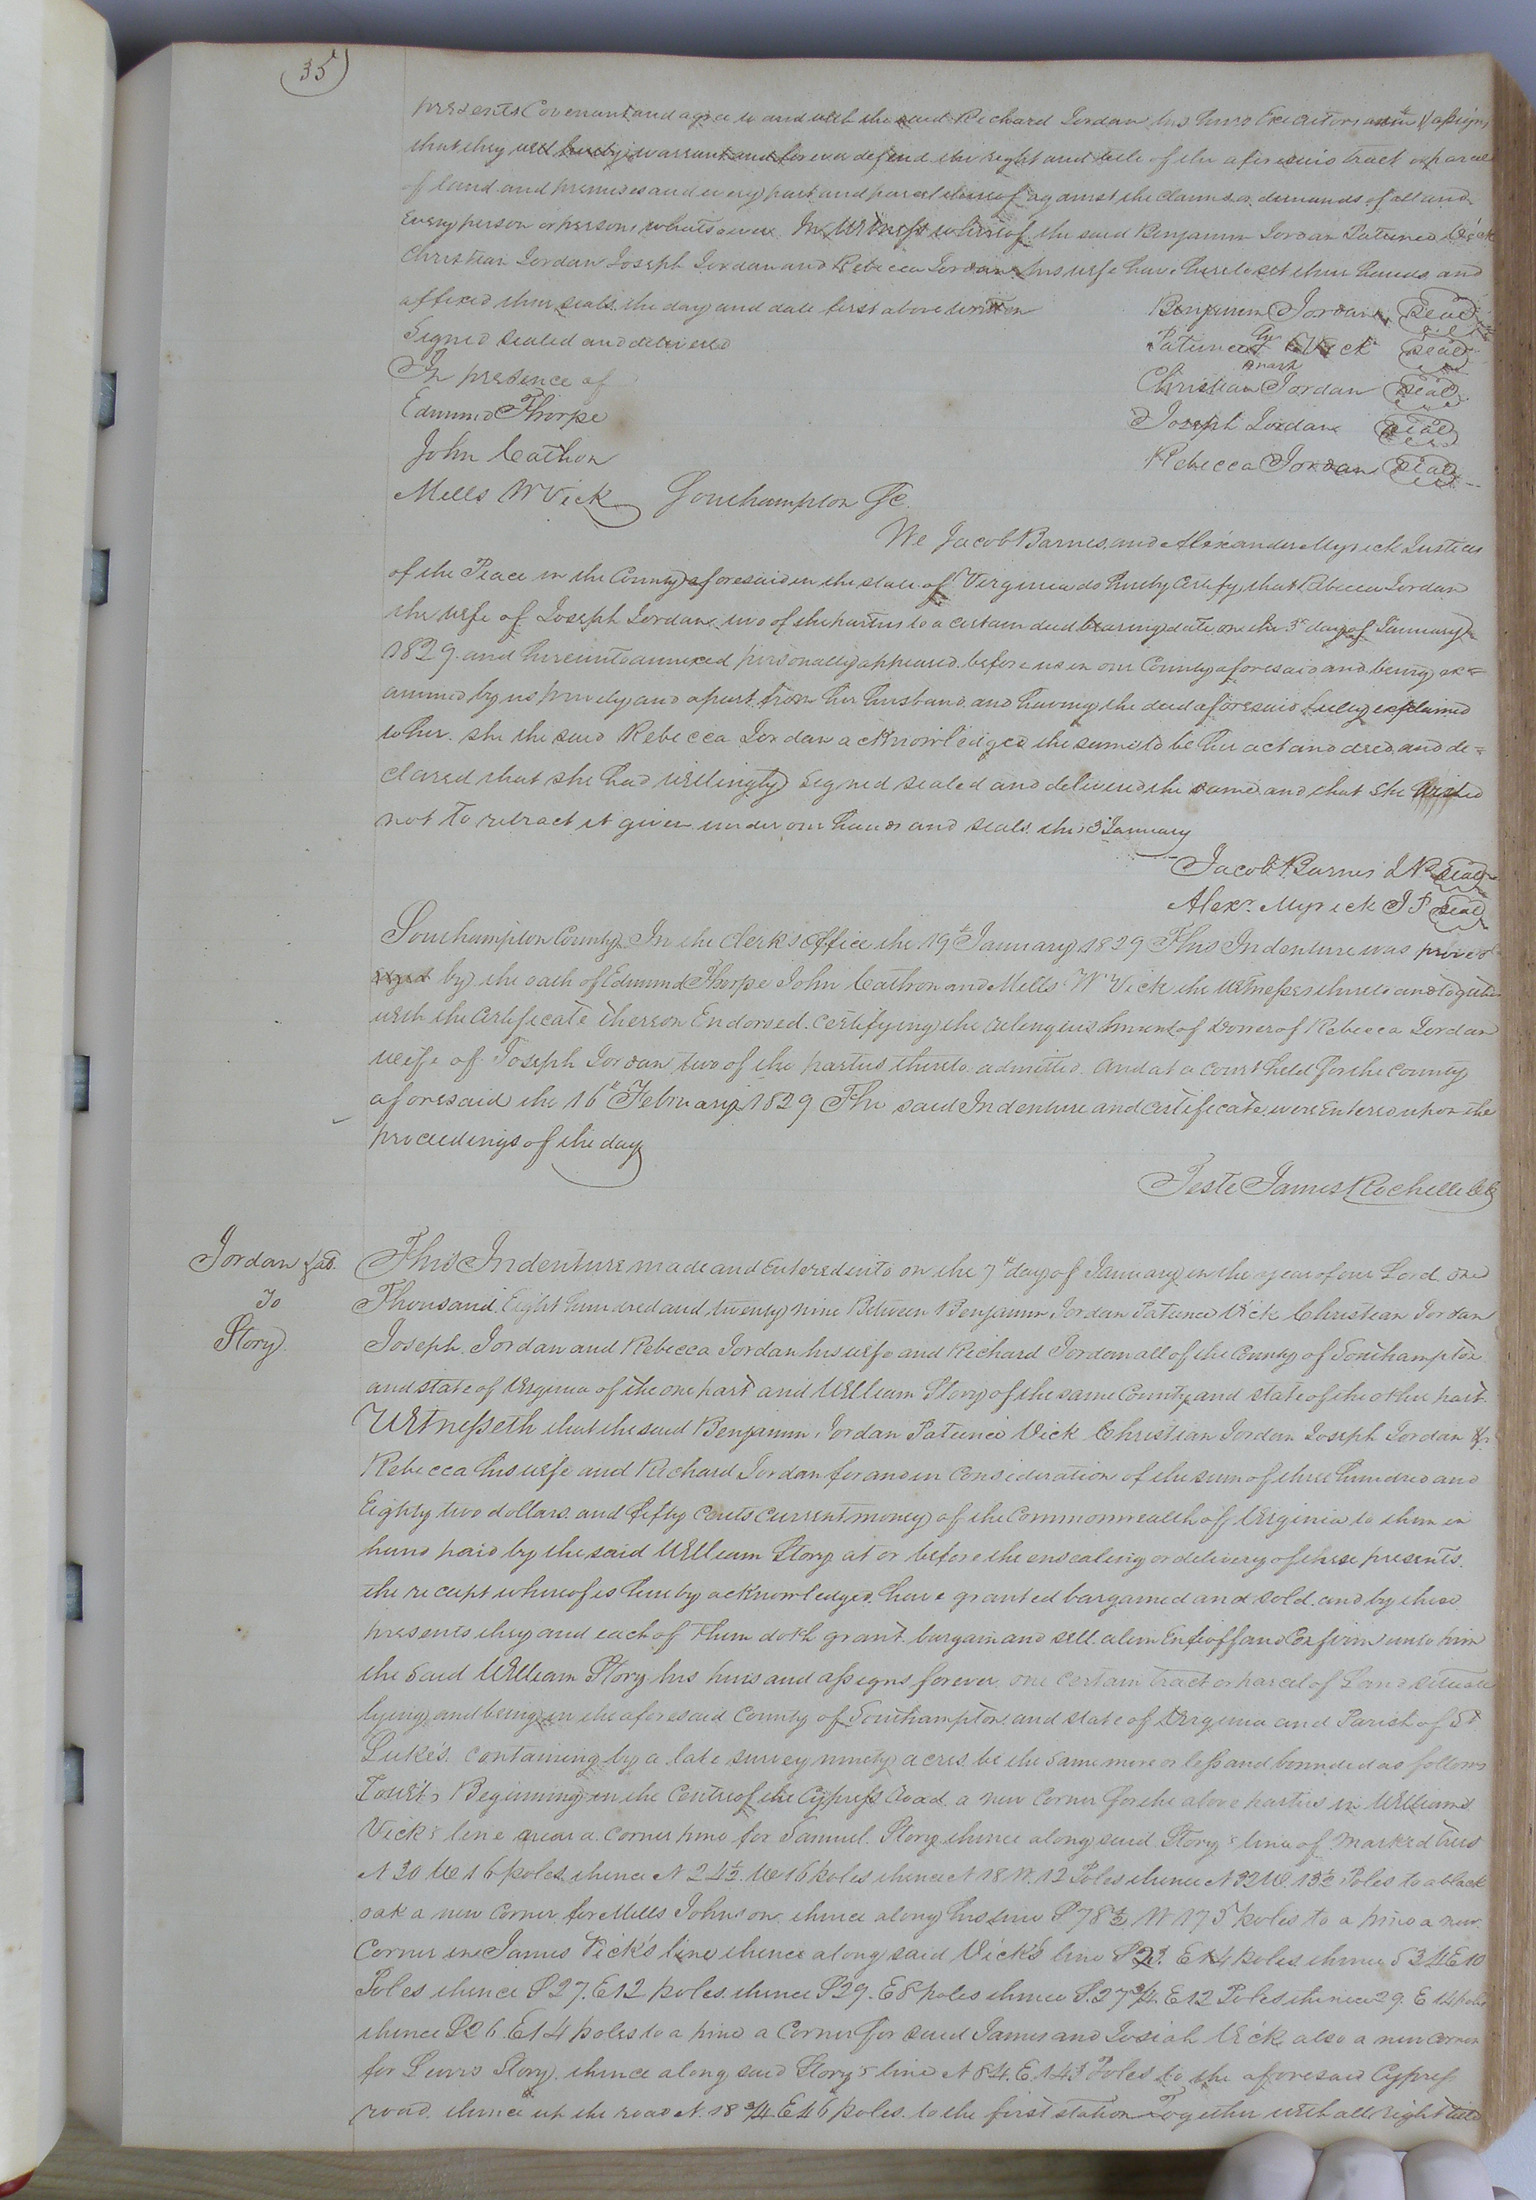 35
presents Covenant and agree to and with the said Richard Jordan his heirs Executors adm & assigns
that they will hereby warrant and forever defend the right and title of the aforesaid tract or parcel
of land and premises and every part and parcel thereof against the claims or demands of all and
Every person or persons whatsoever. In Witness whereof the said Benjamin Jordan Patience Vick
Christian Jordan Joseph Jordan and Rebecca Jordan his wife have hereto set their hands and
affixed their seals the day and date first above written Benjamin Jordan seal
Signed sealed and delivered Patience her Vick seal
mark
In presence of Christian Jordan seal
Edmund Thorpe Joseph Jordan seal
John Cathon Rebecca Jordan seal
Mills W Vick Southampton Sc
We Jacob Barnes and Alexander Myrick Justices
of the Peace in the County aforesaid in the state of Virginia do hereby Certify that Rebecca Jordan
the wife of Joseph Jordan two of the parties to a certain deed bearing date on the 3d day of January
1829 and hereunto annexed personally appeared before us in our County aforesaid and being ex=
amined by us privily and apart from her husband and having the deed aforesaid fully explained
to her. she the said Rebecca Jordan acknowledged the same to be her act and deed and de=
clared that she had willingly signed sealed and delivered the same and that she wished
not to retract it given under our hands and seals this 3 January
Jacob Barnes J P seal
Alexr. Myrick J P seal
Southampton County In the Clerk's Office the 19th January 1829 This Indenture was proved
by the oath of Edmund Thorpe John Cathron and Mills W Vick the Witnesses thereto and together
with the Certificate thereon Endorsed certifying the relinquishment of dower of Rebecca Jordan
wife of Joseph Jordan two of the parties thereto admitted And at a Court held for the County
aforesaid the 16th February 1829 The said Indenture and certificate were Entered upon the
proceedings of the day
Teste James Rochelle Clk
Jordan &als.
To
Story
This Indenture made and Entered into on the 7th day of January in the year of our Lord one
Thousand Eight hundred and twenty nine Between Benjamin Jordan Patience Vick Christian Jordan
Joseph Jordan and Rebecca Jordan his wife and Richard Jordan all of the County of Southampton
and state of Virginia of the one part and William Story of the same County and state of the other part.
Witnesseth that the said Benjamin Jordan Patience Vick Christian Jordan Joseph Jordan &
Rebecca his wife and Richard Jordan for and in Consideration of the sum of three hundred and
Eighty two dollars and fifty Cents Current money of the Commonwealth of Virginia to them in
hand paid by the said William Story at or before the ensealing or delivery of these presents.
the receipt whereof is hereby acknowledged. have granted bargained and sold and by these
presents they and each of them doth grant bargain and sell alien Enfeoff and Confirm unto him
the said William Story his heirs and assigns forever. one certain tract or parcel of Land situate
lying and being in the aforesaid County of Southampton and state of Virginia and Parish of St
Luke's. containing by a late survey ninety acres be the same more or less and bounded as follows
Towit, Beginning in the Centre of the Cypress Road a new Corner for the above parties in William
Vick's line near a corner pine for Samuel Story thence along said Story's line of marked trees
N 30 W 16 poles thence N 24½ W 16 poles thence N 18 W. 12 Poles thence N 32 W. 13½ Poles to a black
oak a new corner for Mills Johnson thence along his line S 78½ W 175 poles to a pine a new
Corner in James Vick's line thence along said Vick's line S 23. E 14 poles thence S 34 E 10
Poles thence S 27. E 12 poles. thence S 29. E 8 poles thence S. 27¾. E 12 Poles thence 29. E 14 poles
thence S 26. E 14 poles to a pine a Corner for said James and Josiah Vick also a new corner
for Lewis Story. thence along said Story's line N 84. E. 143 Poles to the aforesaid Cypress
road. thence up the road N. 18¾. E 46 poles. to the first station Together with all right title